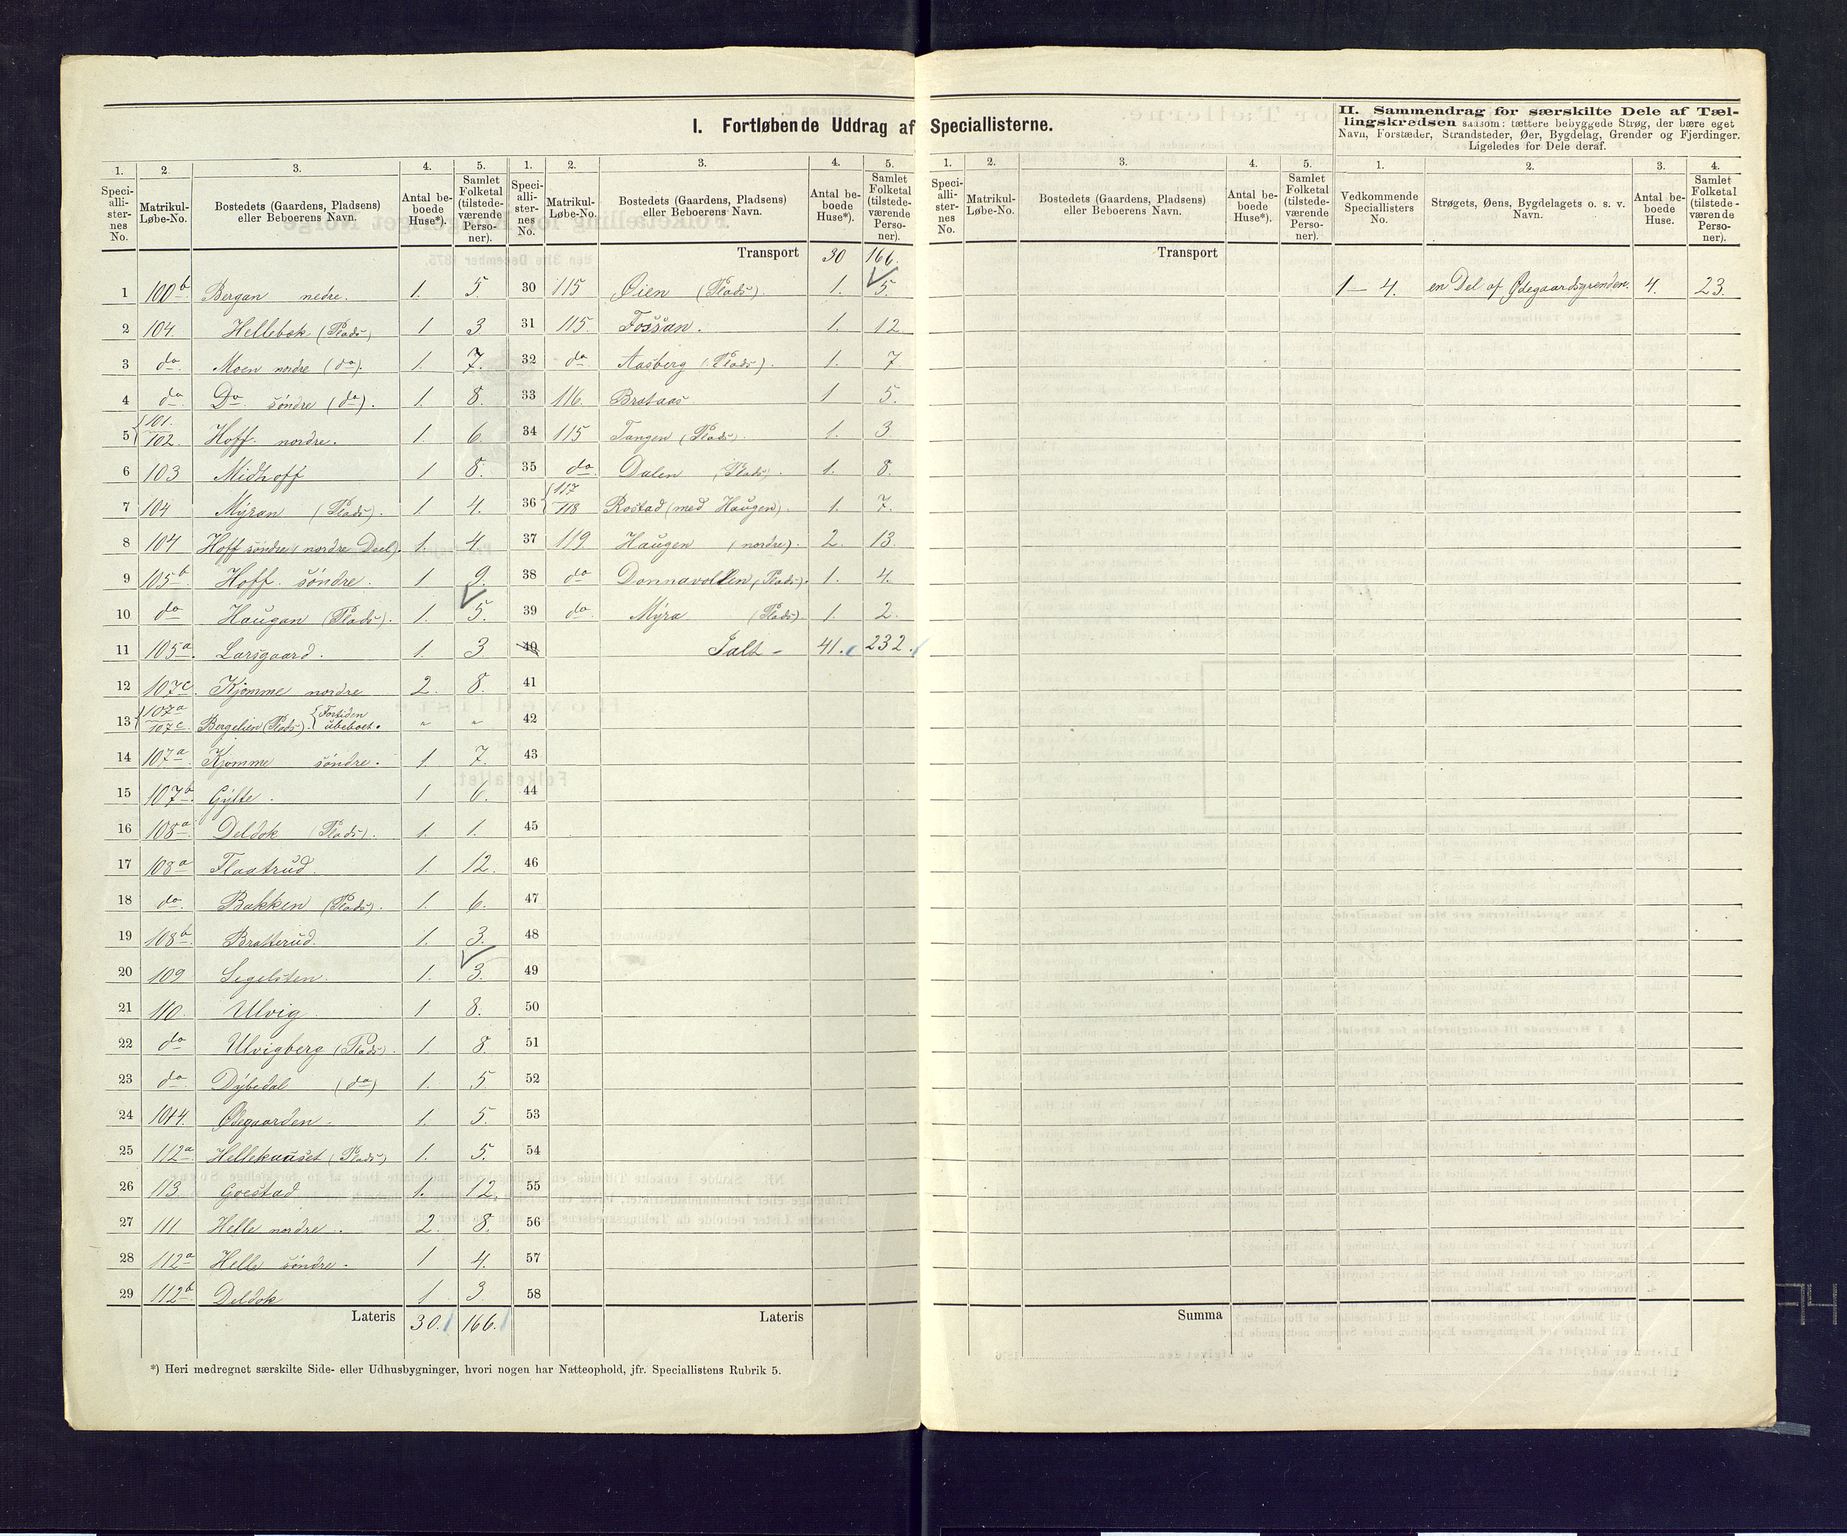 I. Fortløbende Uddrag af Speciallisterne.
II. Sammendrag for særskilte Dele af Tællingskredsen saasom: tættere bebyggede Strøg, der bære eget
Navn, Forstæder, Strandsteder, Øer, Bygdelag, Grender og Fjerdinger.
Ligeledes for Dele deraf.
1. 2. 3. 4. 5. 1. 2. 3. 4. 5. 1. 2. 3. 4. 5. 1. 2. 3. 4.
Speciallisternes No. Matrikul-Løbe-No. Bostedets (Gaardens, Pladsens) eller Beboerens Navn. Antal beboede Huse*). Samlet Folketal (tilstedeværende Personer).
Speciallisternes No. Matrikul-Løbe-No. Bostedets (Gaardens, Pladsens) eller Beboerens Navn. Antal beboede Huse*). Samlet Folketal (tilstedeværende Personer).
Speciallisternes No. Matrikul-Løbe-No. Bostedets (Gaardens, Pladsens) eller Beboerens Navn. Antal beboede Huse*). Samlet Folketal (tilstedeværende Personer).
Vedkommende Speciallisters No. Strøgets, Øens, Bygdelagets o. s. v. Navn. Antal beboede Huse. Samlet Folketal (tilstedeværende Personer).
1 100b Bergan nedre. 1. 5.
2 104 Hellebæk (Plads) 1 3
3 do Moen nordre (do). 1. 7.
4 do Do søndre (do). 1. 8.
5 101. 102. Hoff nordre. 1. 6.
6 103 Midhoff 1 8.
7 104 Myran (Plads). 1 4.
8 104 Hoff søndre (nordre Deel). 1. 4.
9 105b Hoff søndre. 1 9.
10 do Haugan (Plads). 1. 5.
11 105a Larsgaard. 1. 3
12 107c Kjomme nordre 2. 8.
13 107a 107c Bergelien (Plads). Fortiden ubeboet. " "
14 107a Kjomme søndre. 1. 7.
15 107b Gylte. 1 6.
16 108a Deldok (Plads). 1. 1.
17 108a Flastrud. 1 12.
18 do Bakken (Plads). 1. 6.
19 108b Bratterud. 1. 3.
20 109 Segelsten. 1. 3.
21 110. Ulvig. 1 8.
22 do Ulvigberg (Plads). 1. 8.
23 do Dybedal (do) 1. 5
24 Ødegaarden. 1. 5.
25 112a Hellehauset (Plads) 1. 5.
26 113. Goestad 1. 12.
27 111 Helle nordre. 2. 8.
28 112a Helle søndre. 1 4.
29 112b Deldok 1 3
Lateris 30. 166.
Transport 30 166.
30 115 Øien (Plads). 1. 5.
31 115. Fossan. 1. 12
32 do Aasberg (Plads). 1. 7.
33 116. Brataas 1 5.
34 115 Tangen (Plads) 1. 3
35 do Dalen (Plads). 1. 8.
36 117 118 Rostad (med Haugen). 1. 7.
37 119 Haugen (nordre). 2. 13.
38 do Donnavollen (Plads). 1. 4.
39 do Myra (Plads). 1. 2.
40 Ialt - 41. 232.
41
42
43
44
45
46
47
48
49
50
51
52
53
54
55
56
57
58
Lateris
Transport
Summa
1-4. en Del af Ødegaardsgrenden. 4. 23.
*) Heri medregnet særskilte Side- eller Udhusbygninger, hvori nogen har Natteophold, jfr. Speciallistens Rubrik 5.